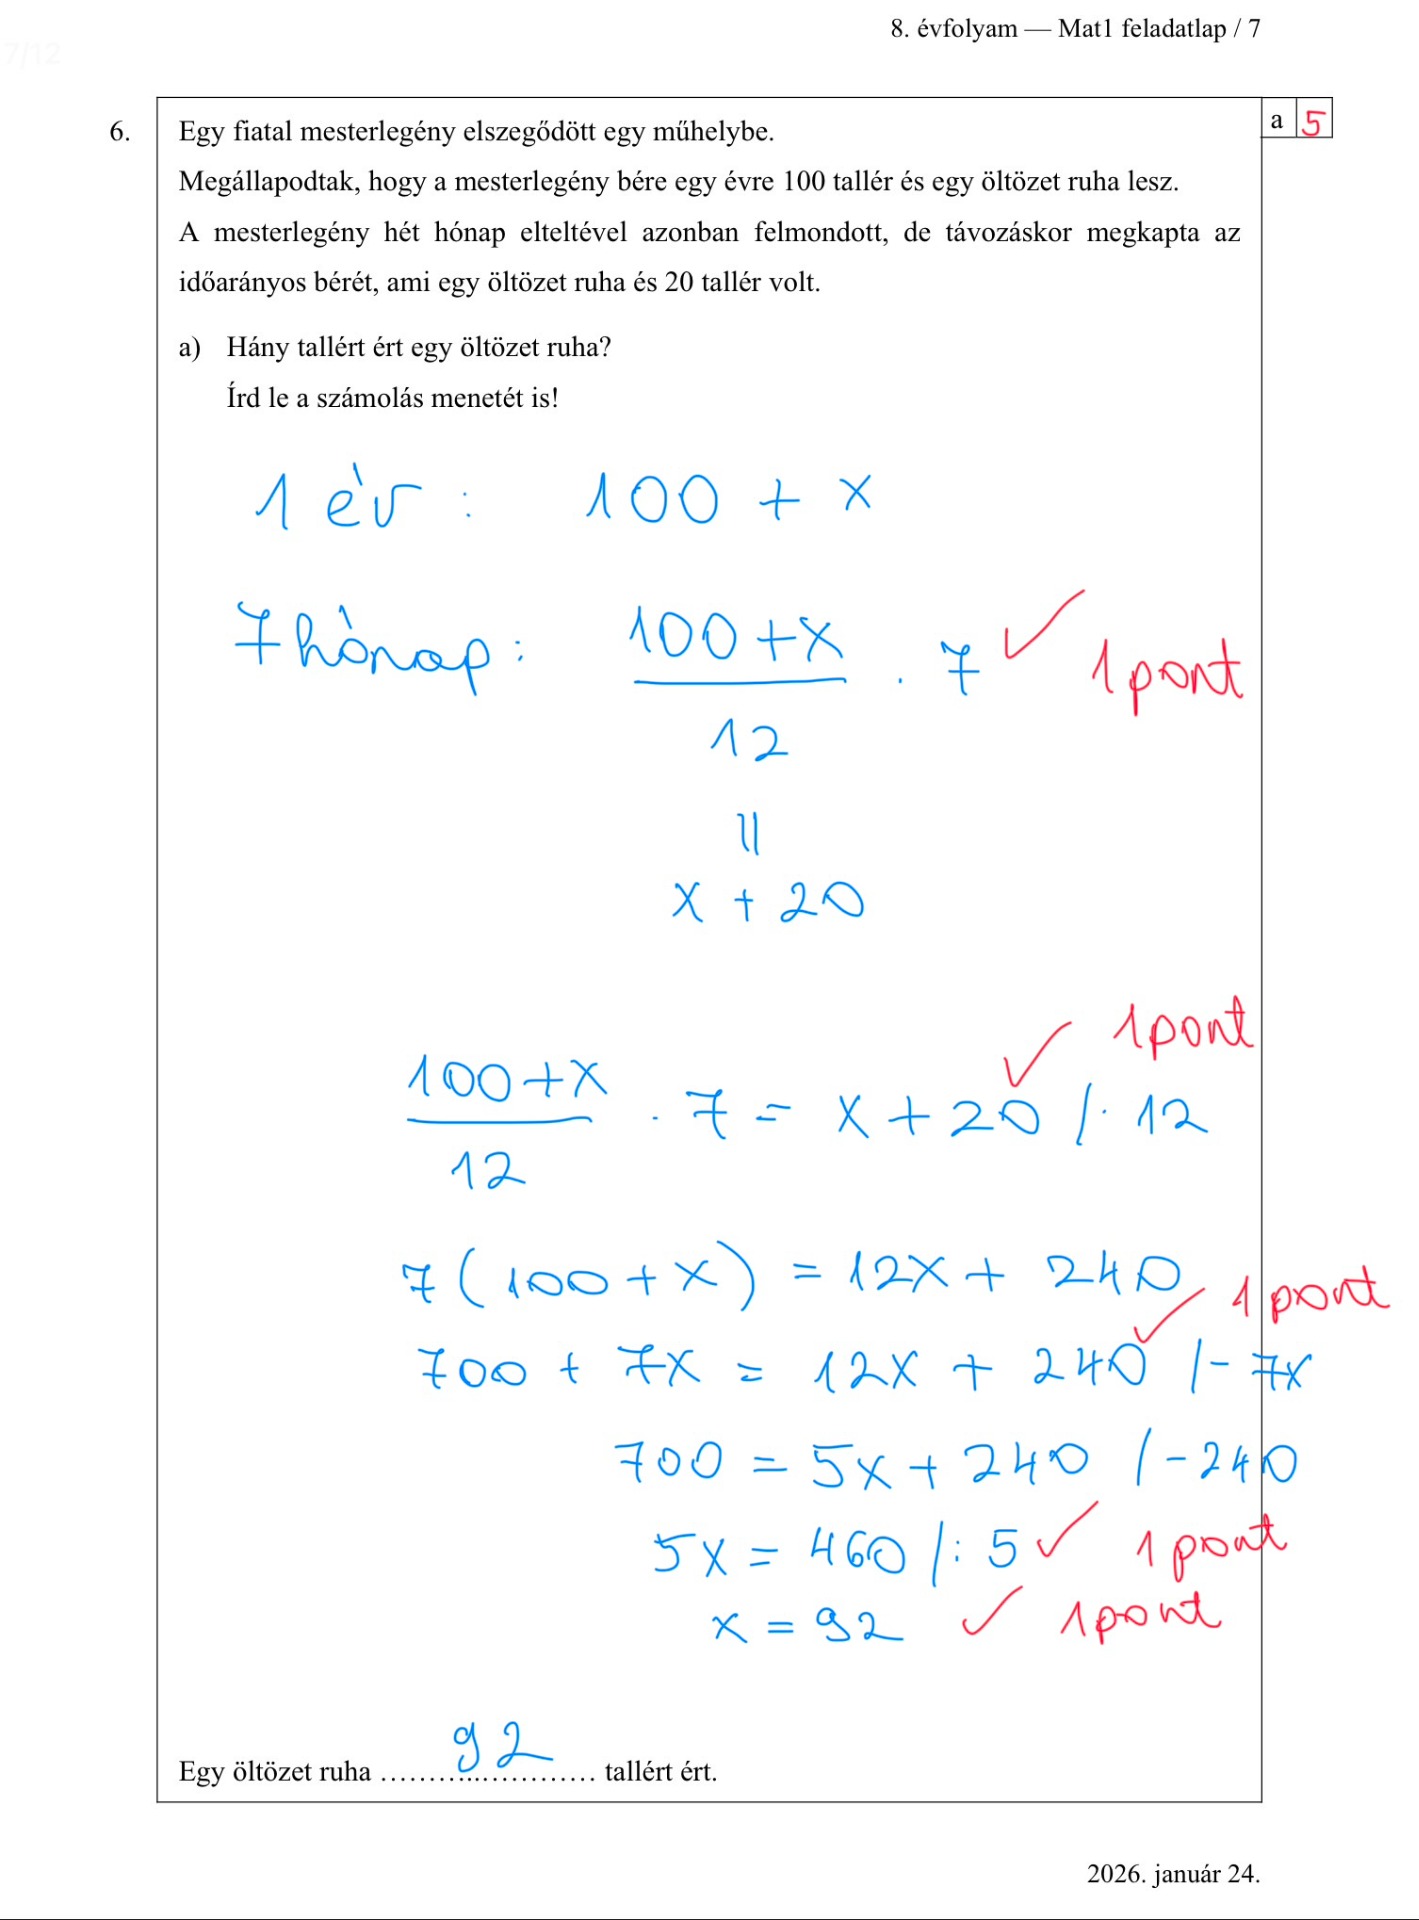 8. évfolyam — Mat1 feladatlap / 7
7/12
a 5
6. Egy fiatal mesterlegény elszegődött egy műhelybe.
Megállapodtak, hogy a mesterlegény bére egy évre 100 tallér és egy öltözet ruha lesz.
A mesterlegény hét hónap elteltével azonban felmondott, de távozáskor megkapta az
időarányos bérét, ami egy öltözet ruha és 20 tallér volt.
a) Hány tallért ért egy öltözet ruha?
Írd le a számolás menetét is!
1 év : 100 + x
7 hónap : (100 + x)/12 · 7 ✓ 1 pont
||
x + 20
(100 + x)/12 · 7 = x + 20 / · 12 ✓ 1 pont
7 (100 + x) = 12x + 240
700 + 7x = 12x + 240 / - 7x ✓ 1 pont
700 = 5x + 240 / - 240
5x = 460 / : 5 ✓ 1 pont
x = 92 ✓ 1 pont
Egy öltözet ruha ........92........ tallért ért.
2026. január 24.